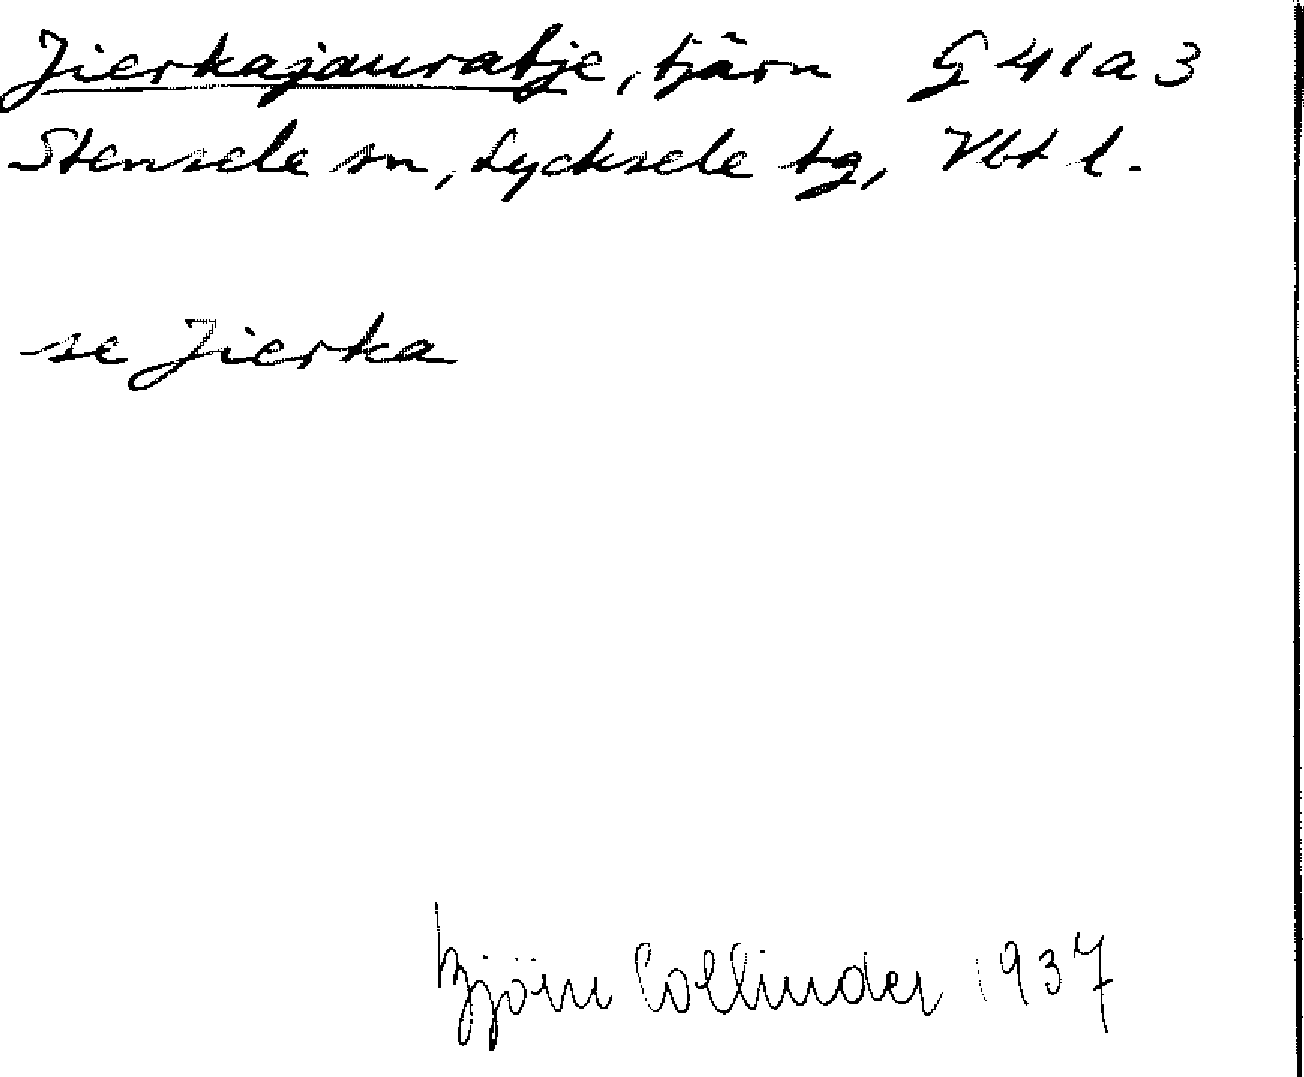 Jierkajauratje, tjärn G 41 a 3
Stensele sn, Lycksele tg, Vbt l.
se Jierka
Björn Collinder 1937